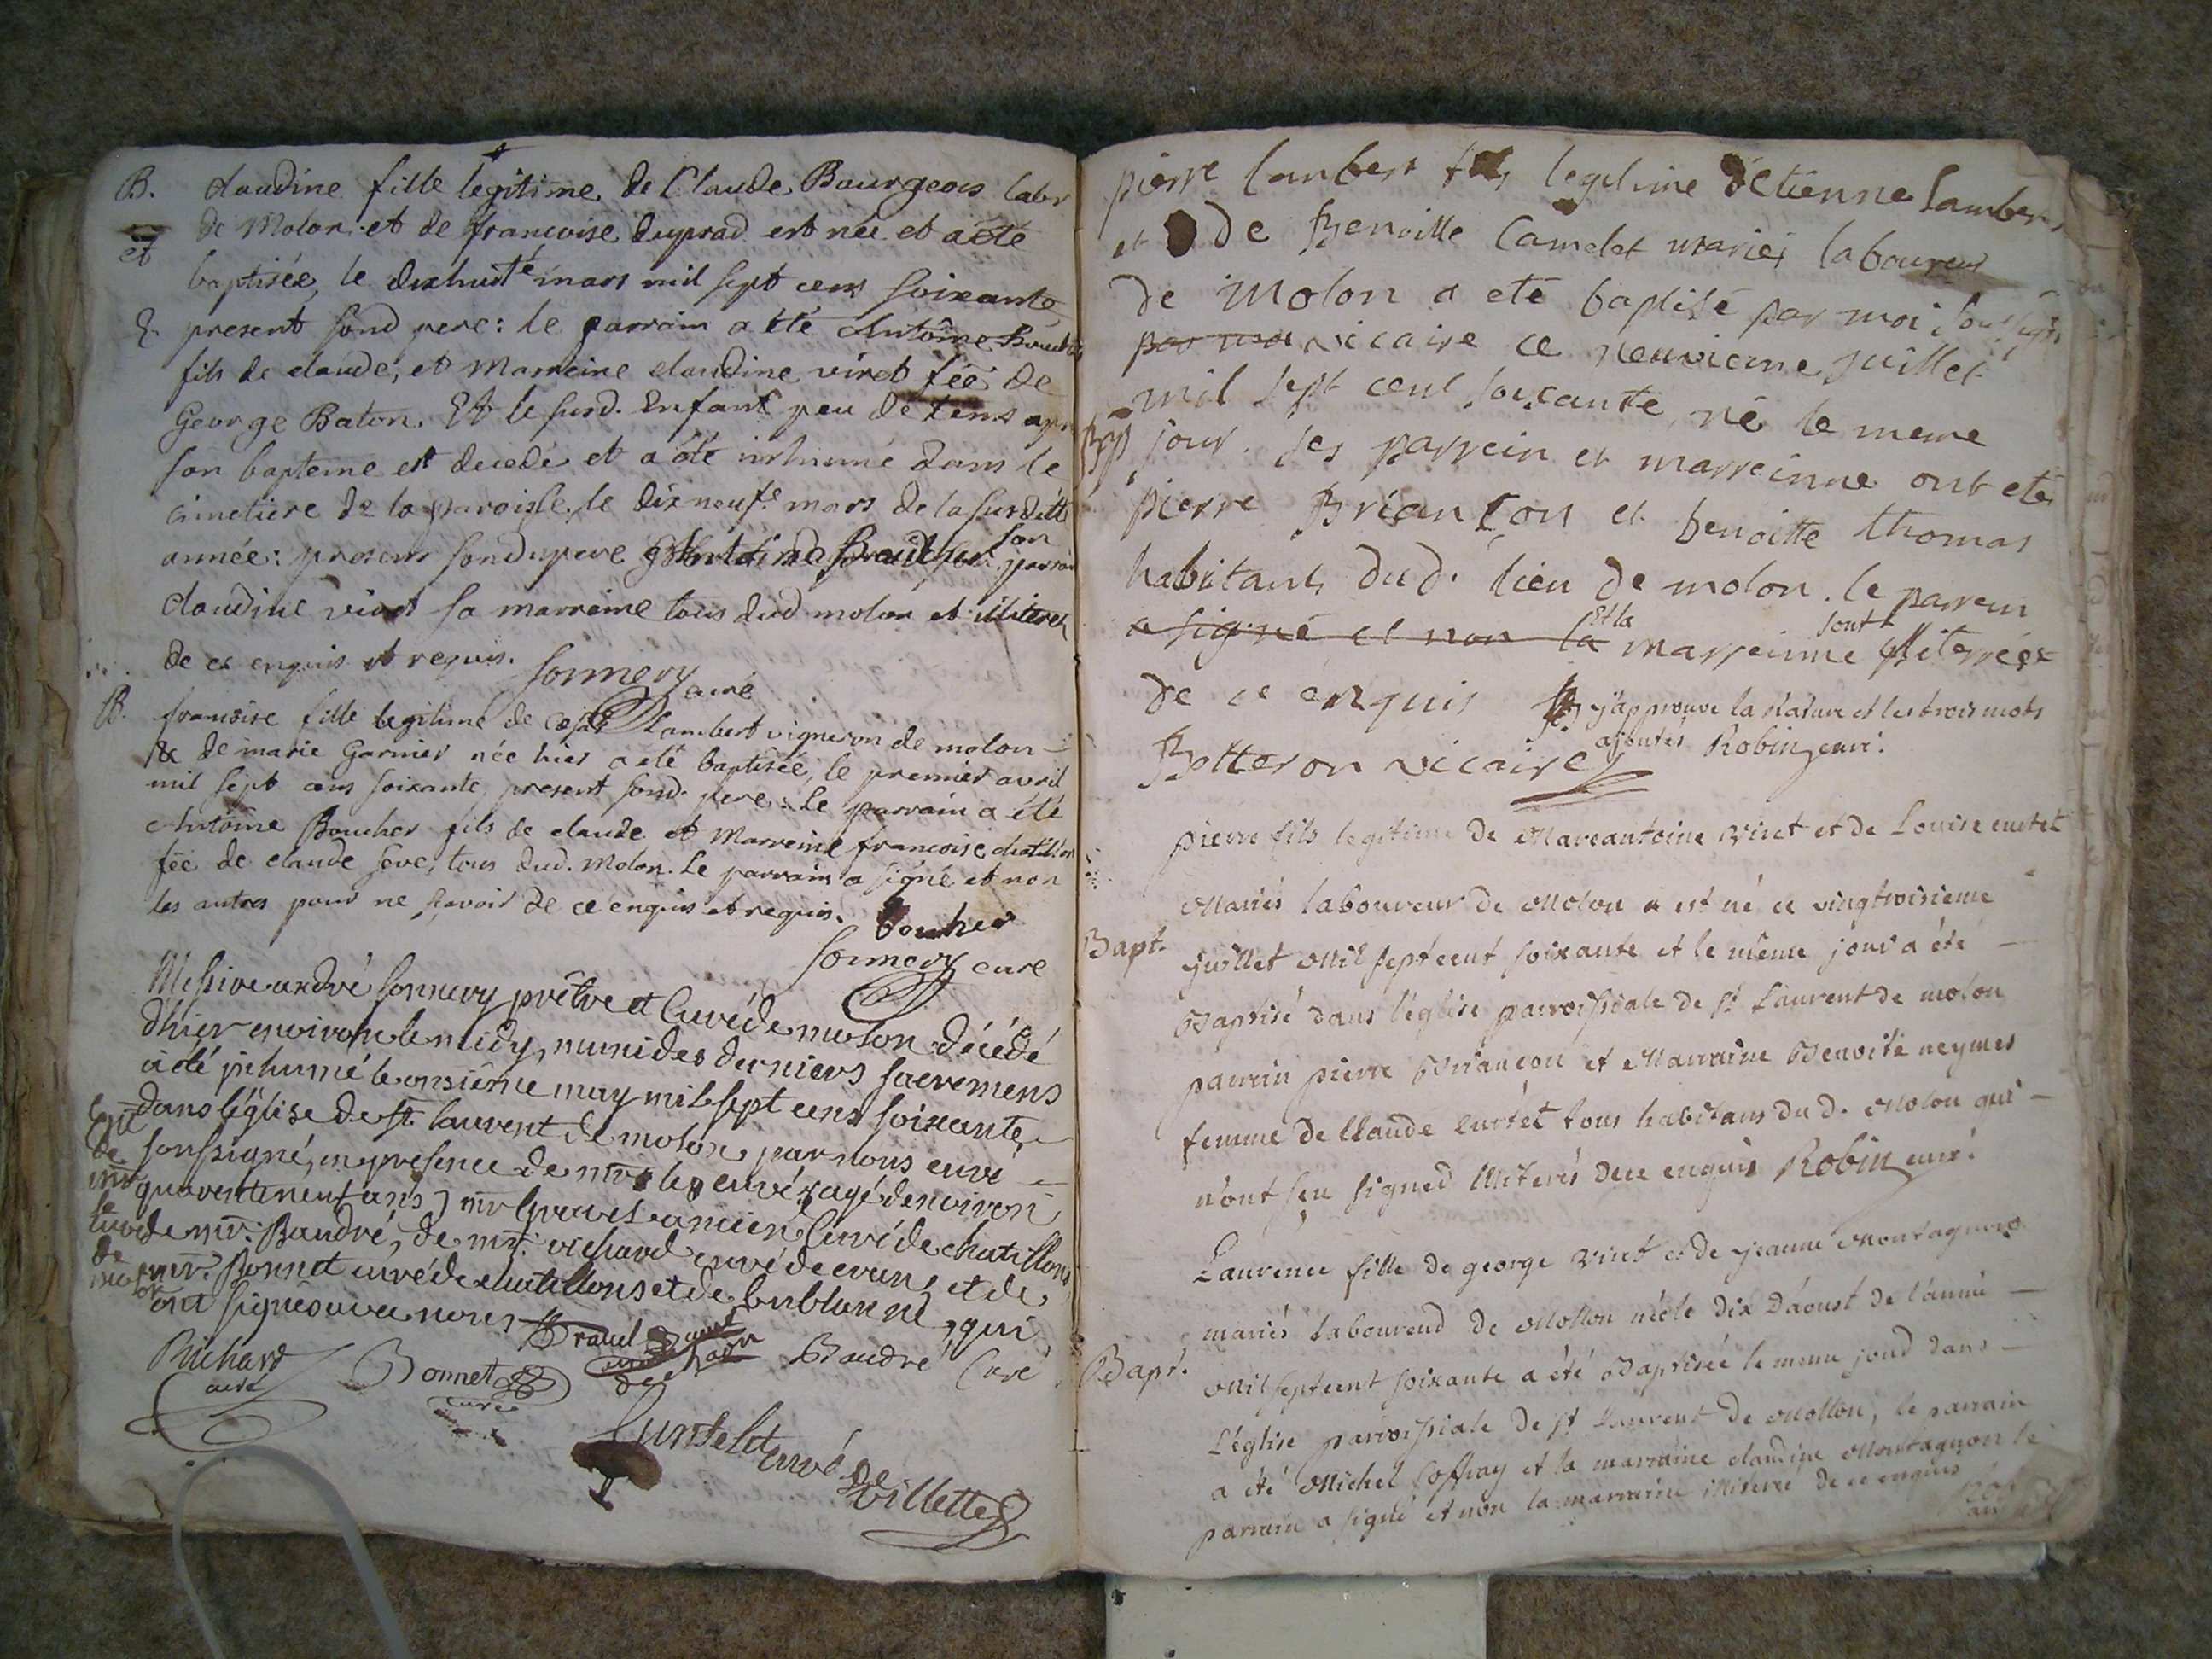 B. claudine fille legitime de Claude Bourgeois labr
et de Molon et de francoise duprad est née et a été
baptisée, le dixhuite mars mil sept cens soixante
E present sond pere: le parrain a été Antoine Boucher
fils de claude, et Marreine claudine viret fée de
George Baton. Et le susd. Enfant peu de tems apr
son bapteme est decedé et a été inhumé dans le
cimetiere de la paroisse, le dix neufe mars de la susditte
année: presens sond pere Antoine Boucher son parrain
claudine viret sa marreine tous dud molon et illiterés
de ce enquis et requis. Sonnery curé
B. francoise fille legitime de Lambert vigneron de molon
& de marie Garnier née hier a été baptisée, le premier avril
mil sept cens soixante, present sond. pere: Le parrain a été
Antoine Boucher fils de claude et Marreine francoise
fée de claude seve, tous dud. Molon. Le parrain a signé et non
les autres pour ne scavoir de ce enquis et requis. Boucher
Sonnery curé
Messire andré Sonnery prêtre et Curé de molon décédé
dhier environ le midy, muni des derniers sacremens
a été inhumé le onsiême may mil sept cens soixante,
dans léglise de st. laurent de molon, par nous curé
soussigné, en presence de mrs les curés, agé denviron
quarenteneuf ans, mr Graves ancien Curé de chatillon
de mr. Baudré, de mr. richard curé de crans, et de
mr. Bonnet curé de chatillons et de bublanne, qui
ont signés avec nous
Richard curé Bonnet curé Baudré Curé
curé de Villette
pierre lambert fils legitime d'etienne lambert
et de Benoitte Camelet mariés laboureur
de Molon a eté baptisé par moi soussigné
par moi vicaire ce neuvieme juillet
mil sept cent soixante, né le meme
Bap jour. ses parrein et marreinne ont eté
pierre Briançon et benoitte thomas
habitants dud. lieu de molon. le parrein
a signé et non la et la marreinne sont illiterrés
de ce enquis j'approuve la rature et les trois mots
ajoutés Robin curé.
Botteron vicaire
pierre fils legitime de Marcantoine Viret et de Louise curtet
Mariés laboureur de Molon est né ce vingtroisieme
Bapt. juillet Mil sept cent soixante et le même jour a été
Baptisé dans l'église parroissiale de st Laurent de molon
parrain pierre Briançon et Marraine Benoite neymes
femme de Claude curtet tous habitans dud. Molon qui
n'ont seu signer Illiterés dece enquis Robin curé.
Laurence fille de george Viret et de jeanne Montagnon
mariés laboureur de Mollon née le dix D'aoust de l'année
Bapt. Mil sept cent soixante a été Baptisée le meme jour dans
L'église parroissiale de st Laurent de Mollon, le parrain
a été Michel Coffray et la marraine claudine Montagnon le
parrain a signé et non la marraine illiterée de ce enquis